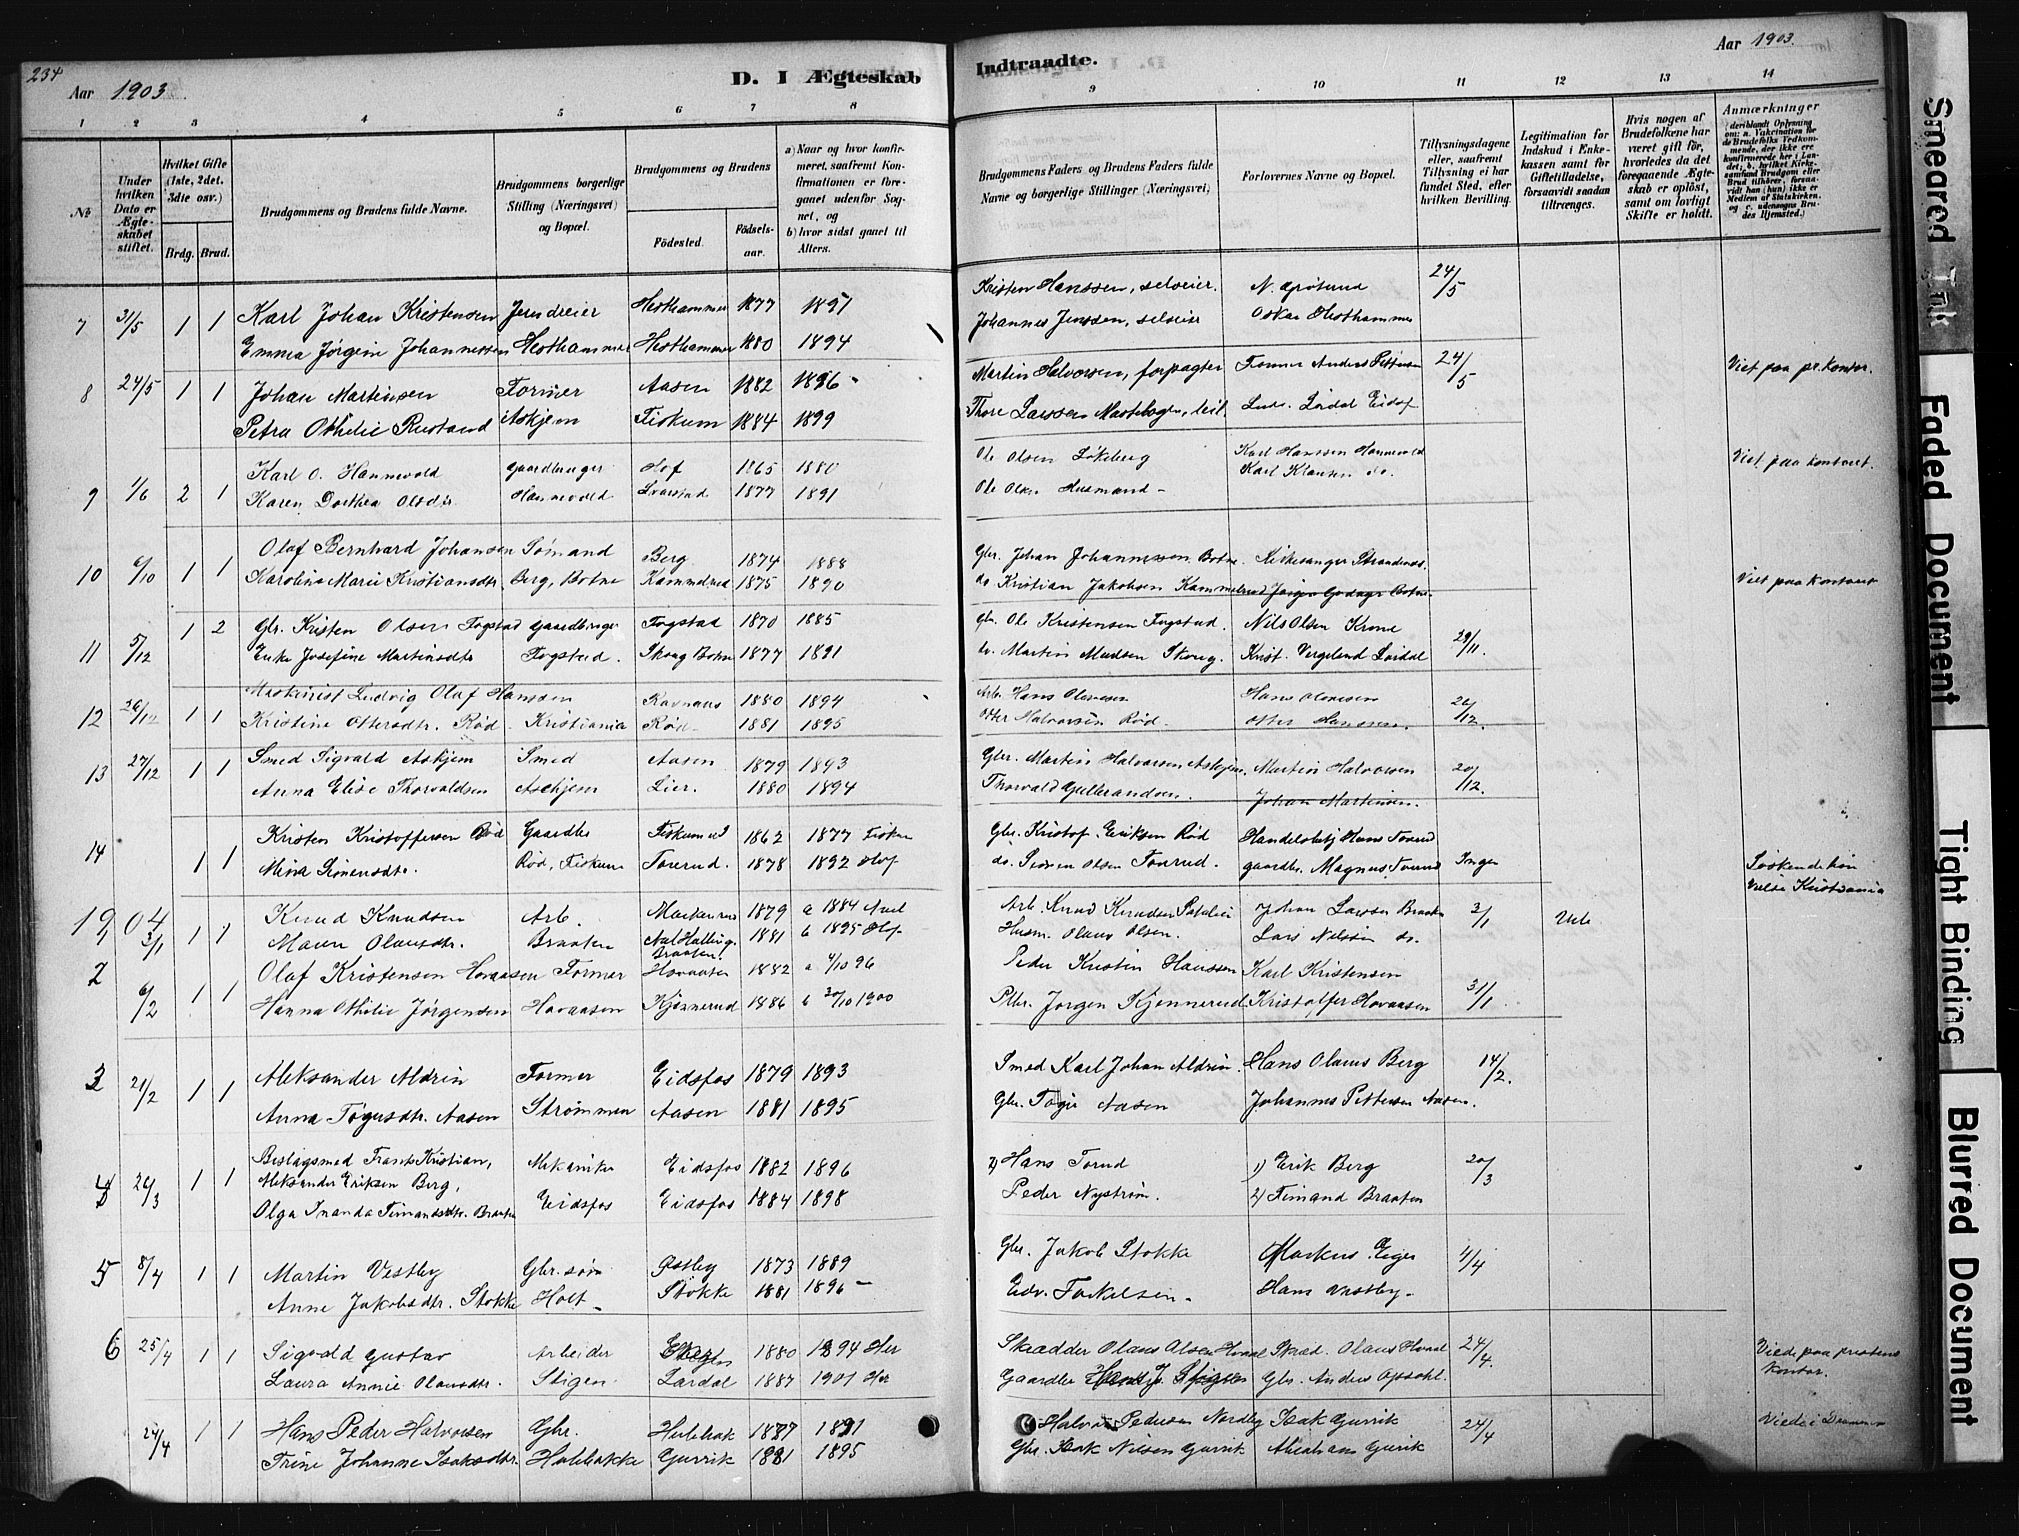 234
Aar 1903
D. I Ægteskab
Indtraadte.
Aar 1903.
1 2 3 4 5 6 7 8 9 10 11 12 13 14
No
Under hvilken Dato er Ægteskabet stiftet.
Hvilket Gifte (1ste, 2det, 3die osv.)
Brdg. Brud.
Brudgommens og Brudens fulde Navne.
Brudgommens borgerlige Stilling (Næringsvei) og Bopæl.
Brudgommens og Brudens
Fødested. Fødsels-aar.
a) Naar og hvor konfirmeret, saafremt Konfirmationen er foregaaet udenfor Sognet, og
b) hvor sidst gaaet til Alters.
Brudgommens Faders og Brudens Faders fulde Navne og borgerlige Stillinger (Næringsvei)
Forlovernes Navne og Bopæl.
Tillysningsdagene eller, saafremt Tillysning ei har fundet Sted, efter hvilken Bevilling.
Legitimation for Indskud i Enkekassen samt for Giftetilladelse, forsaavidt saadan tiltrænges.
Hvis nogen af Brudefolkene har været gift før, hvorledes da det foregaaende Ægteskab er opløst, samt om lovligt Skifte er holdt.
Anmærkninger
deriblandt Oplysning om: a. Vakcination for de Brudefolks Vedkommende, der ikke er konfirmerede her i Landet, b. hvilket Kirkesamfund Brudgom eller Brud tilhører, forsaavidt han (hun) ikke er Medlem af Statskirken, og c. udensogns Brudes Hjemsted.
7 31/5 1 1 Karl Johan Kristensen Jerndreier Hesthammer 1877 1891 Kristen Hanssen, selveier. N. Grøslund 24/5
Emma Jørgine Johannessen Hesthammer Hesthammer 1880 1894 Johannes Jenssen, selveier Oskar Hesthammer
8 24/5 1 1 Johan Martinsen Former Aasen 1882 1896 Martin Halvorsen, forpagter Former Anders Pettersen 24/5 Viet paa pr. kontor.
Petra Othilie Rustand Askjem Fiskum 1884 1899 Thore Larssen
9 1/6 2 1 Karl O. Hannevold Gaardbruger Hof 1865 1880 Ole Olsen Løkeberg Karl Hanssen Hannevold Viet paa kontoret.
Karen Dorthea Olsdtr. Hannevold Svarstad 1877 1891 Ole Olsen Husmand Karl Klausen do.
10 6/10 1 1 Olaf Bernhard Johansen Sømand Berg 1874 1888 Gbr. Johan Johannessen Botne. Kirkesanger Strandenæs. Viet paa kontoret
Karoline Marie Kristiansdtr. Berg, Botne Kammelrud 1875 1890 do Kristian Jakobsen Kammelrud
11 5/12 1 2 Gbr. Kristen Olsen Fogstad Gaardbruger Fogstad 1870 1885 Gbr. Ole Kristensen Fogstad. Nils Olsen Krone 29/11.
Enke Josefine Martinsdtr Fogstad. Skoug Botne 1877 1891 do. Martin Madsen Skoug. Krist. Vegeland Lørdal
12 26/12 1 1 Maskinist Ludvig Olaf Hanssen Ravnaas 1880 1894 Arb. Hans Olavesen Hans Olavesen 26/12.
Kristine Ottersdtr. Rød. Kristiania Rød 1881 1895 Otter Halvorsen Rød. Otter Hanssen.
13 27/12 1 1 Smed Sigvald Askjem Smed Aasen 1879 1893 Gbr. Martin Halvorsen Askjem Martin Halvorsen 20/12.
Anna Elise Thorvaldsen Askjem Lier. 1880 1894 Thorvald Gulbrandsen. Johan Martinsen.
14 1 1 Kristen Kristoffersen Rød Gaardbr Fiskum 1862 1877 Fiskum Gbr. Kristof. Eriksen Rød Handelsbetj Hans Torrud Ingen Søskendebørn
Mina Sørensdtr. Rød, Fiskum Torrud. 1878 1892 Hof do. Søren Olsen Torrud. gaardbr. Magnus Torrud Vielse Kristiania
1904
1 3/1 1 1 Knud Knudsen Arb. 1879 a 1884 Aal Arb. Knud Knudsen Johan Larsen Braaten 3/1
Maren Olausdtr. Braaten Aal Halling. Braaten! 1881 b 1895 Hof Husm. Olaus Olsen. Lars Nilssen do.
2 6/2 1 1 Olaf Kristensen Hovaasen Former Hovaasen 1882 a 4/10 96 Peder Kristin Hanssen Karl Kristensen 31/1.
Hanna Othilie Jørgensen Hovaasen Kjønnerud 1886 b 30/10 1900 Pbr. Jørgen Kjennerud Kristoffer Hovaasen
3 21/2 1 1 Aleksander Aldrin Former Eidsfos 1879 1893 Smed Karl Johan Aldrin. Hans Olaus Berg 14/2.
Anna Tøgersdtr. Aasen Strømmen Aasen 1881 1895 Gbr. Tøger Aasen Johannes Pettersen Aasen.
4 26/3 1 1 Beslagsmed Frants Kristian, Aleksander Eriksen Berg, Mekaniker Eidsfos 1882 1896 1) Hans Torud 1) Erik Berg 20/3
Olga Inanda Timansdtr. Braaten Eidsfos Eidsfos 1884 1898 Peder Nystrøm. 2) Timand Braaten
5 8/4 1 1 Martin Vestby Gbr. søn Østby 1873 1889 Gbr. Jakob Stokke Markus Eiger 4/4
Anne Jakobsdtr. Stokke Holt Stokke 1881 1896 Edv. Torkelsen. Hans Vestby.
6 25/4 1 1 Sigvald Gustav Arbeider 1880 1894 Her Skrædder Olaus Olsen Hvaal Skræd. Olaus Hvaal 24/4. Viede paa prestens kontor.
Laura Annie Olausdtr. Stigen. Lardal 1887 1901 Her Gaardbr Gbr. Anders Opsahl.
24/4 1 1 Hans Peder Halvorsen Gbr. Hulebak 1877 1891 Halvor Pedersen Nordby Isak Gurrik 24/4 Viede i Drammen
Trine Johanne Isaksdtr. Hulebakke Gurrik 1881 1895 Gbr. Isak Nilsen Gurrik Abraham Gurik
Smeared Ink
Faded Document
Tight Binding
Blurred Document